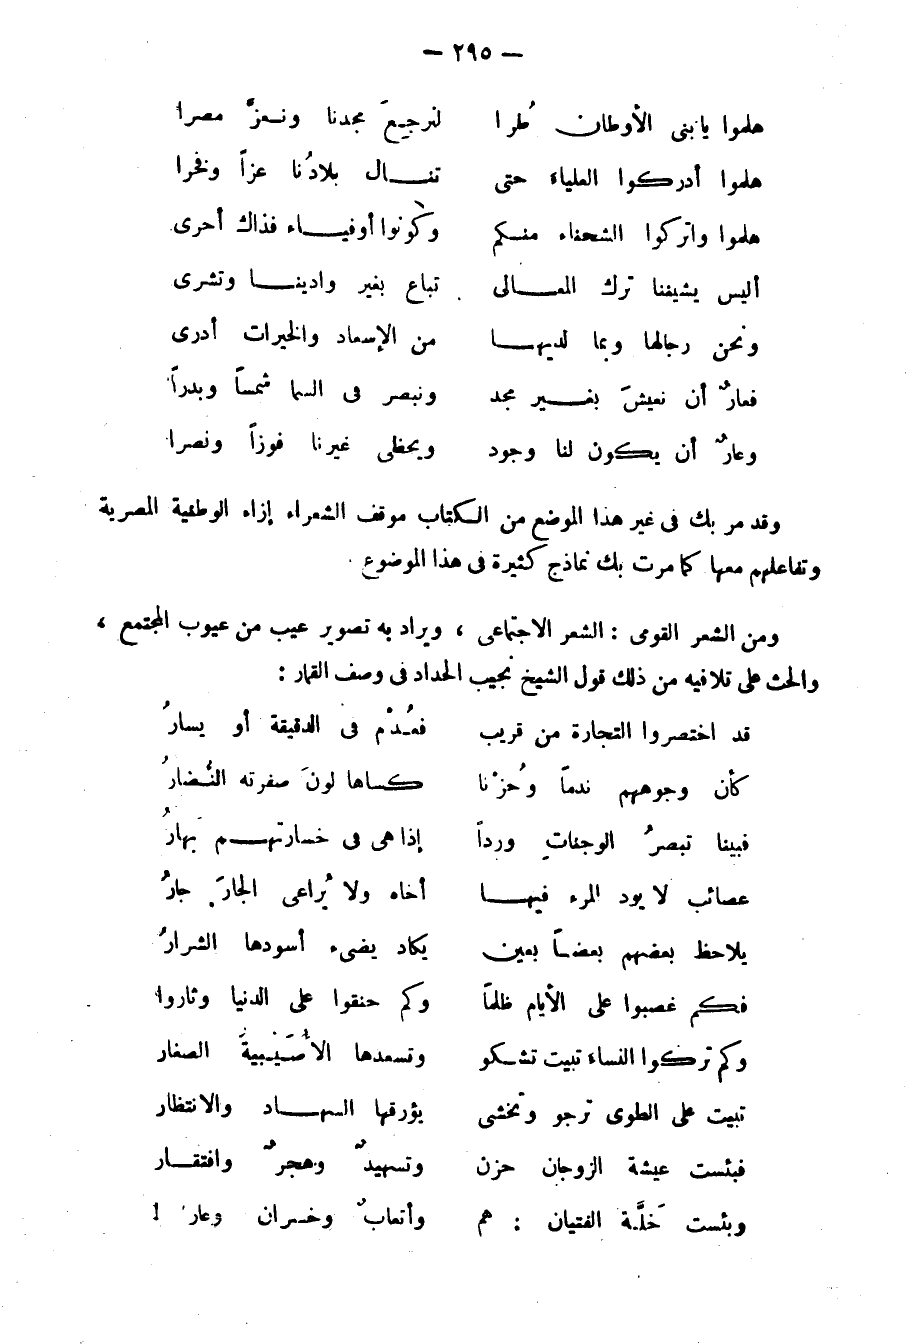 — ٢٩٥ —
هلموا يا بنى الأوطان طُرا لنرجعَ مجدنا ونعزَّ مصرا
هلموا أدركوا العلياء حتى تنال بلادُنا عزاً وفخرا
هلموا واتركوا الشحناء منكم وكونوا أوفياء فذاك أحرى
أليس يشيننا ترك المعالى تباع بغير وادينا وتشرى
ونحن رجالها وبما لديها من الإسعاد والخيرات أدرى
فعارٌ أن نعيشَ بغير مجد ونبصر فى السما شمساً وبدراً
وعارٌ أن يكون لنا وجود ويحظى غيرنا فوزاً ونصرا
وقد مر بك فى غير هذا الموضع من الكتاب موقف الشعراء إزاء الوطنية المصرية
وتفاعلهم معها كما مرت بك نماذج كثيرة فى هذا الموضوع .
ومن الشعر القومى : الشعر الاجتماعى ، ويراد به تصوير عيب من عيوب المجتمع ،
والحث على تلافيه من ذلك قول الشيخ نجيب الحداد فى وصف القمار :
قد اختصروا التجارة من قريب فعُدْم فى الدقيقة أو يسارُ
كأن وجوههم ندماً وحُزْنا كساها لونَ صفرته النُّضارُ
فبينا تبصرُ الوجناتِ ورداً إذا هى فى خسارتهم بَهارُ
عصائب لا يود المرء فيها أخاه ولا يُراعى الجارَ جارُ
يلاحظ بعضهم بعضاً بعين يكاد يضىء أسودها الشرارُ
فكم غصبوا على الأيام ظلماً وكم حنقوا على الدنيا وثاروا
وكم تركوا النساء تبيت تشكو وتسعدها الأُصَيْبيةَ الصغار
تبيت على الطوى ترجو وتخشى يؤرقها السهاد والانتظار
فبئست عيشة الزوجان حزن وتسهيدٌ وهجرٌ وافتقار
وبئست خَلَّة الفتيان : هم وأتعابٌ وخسران وعار !